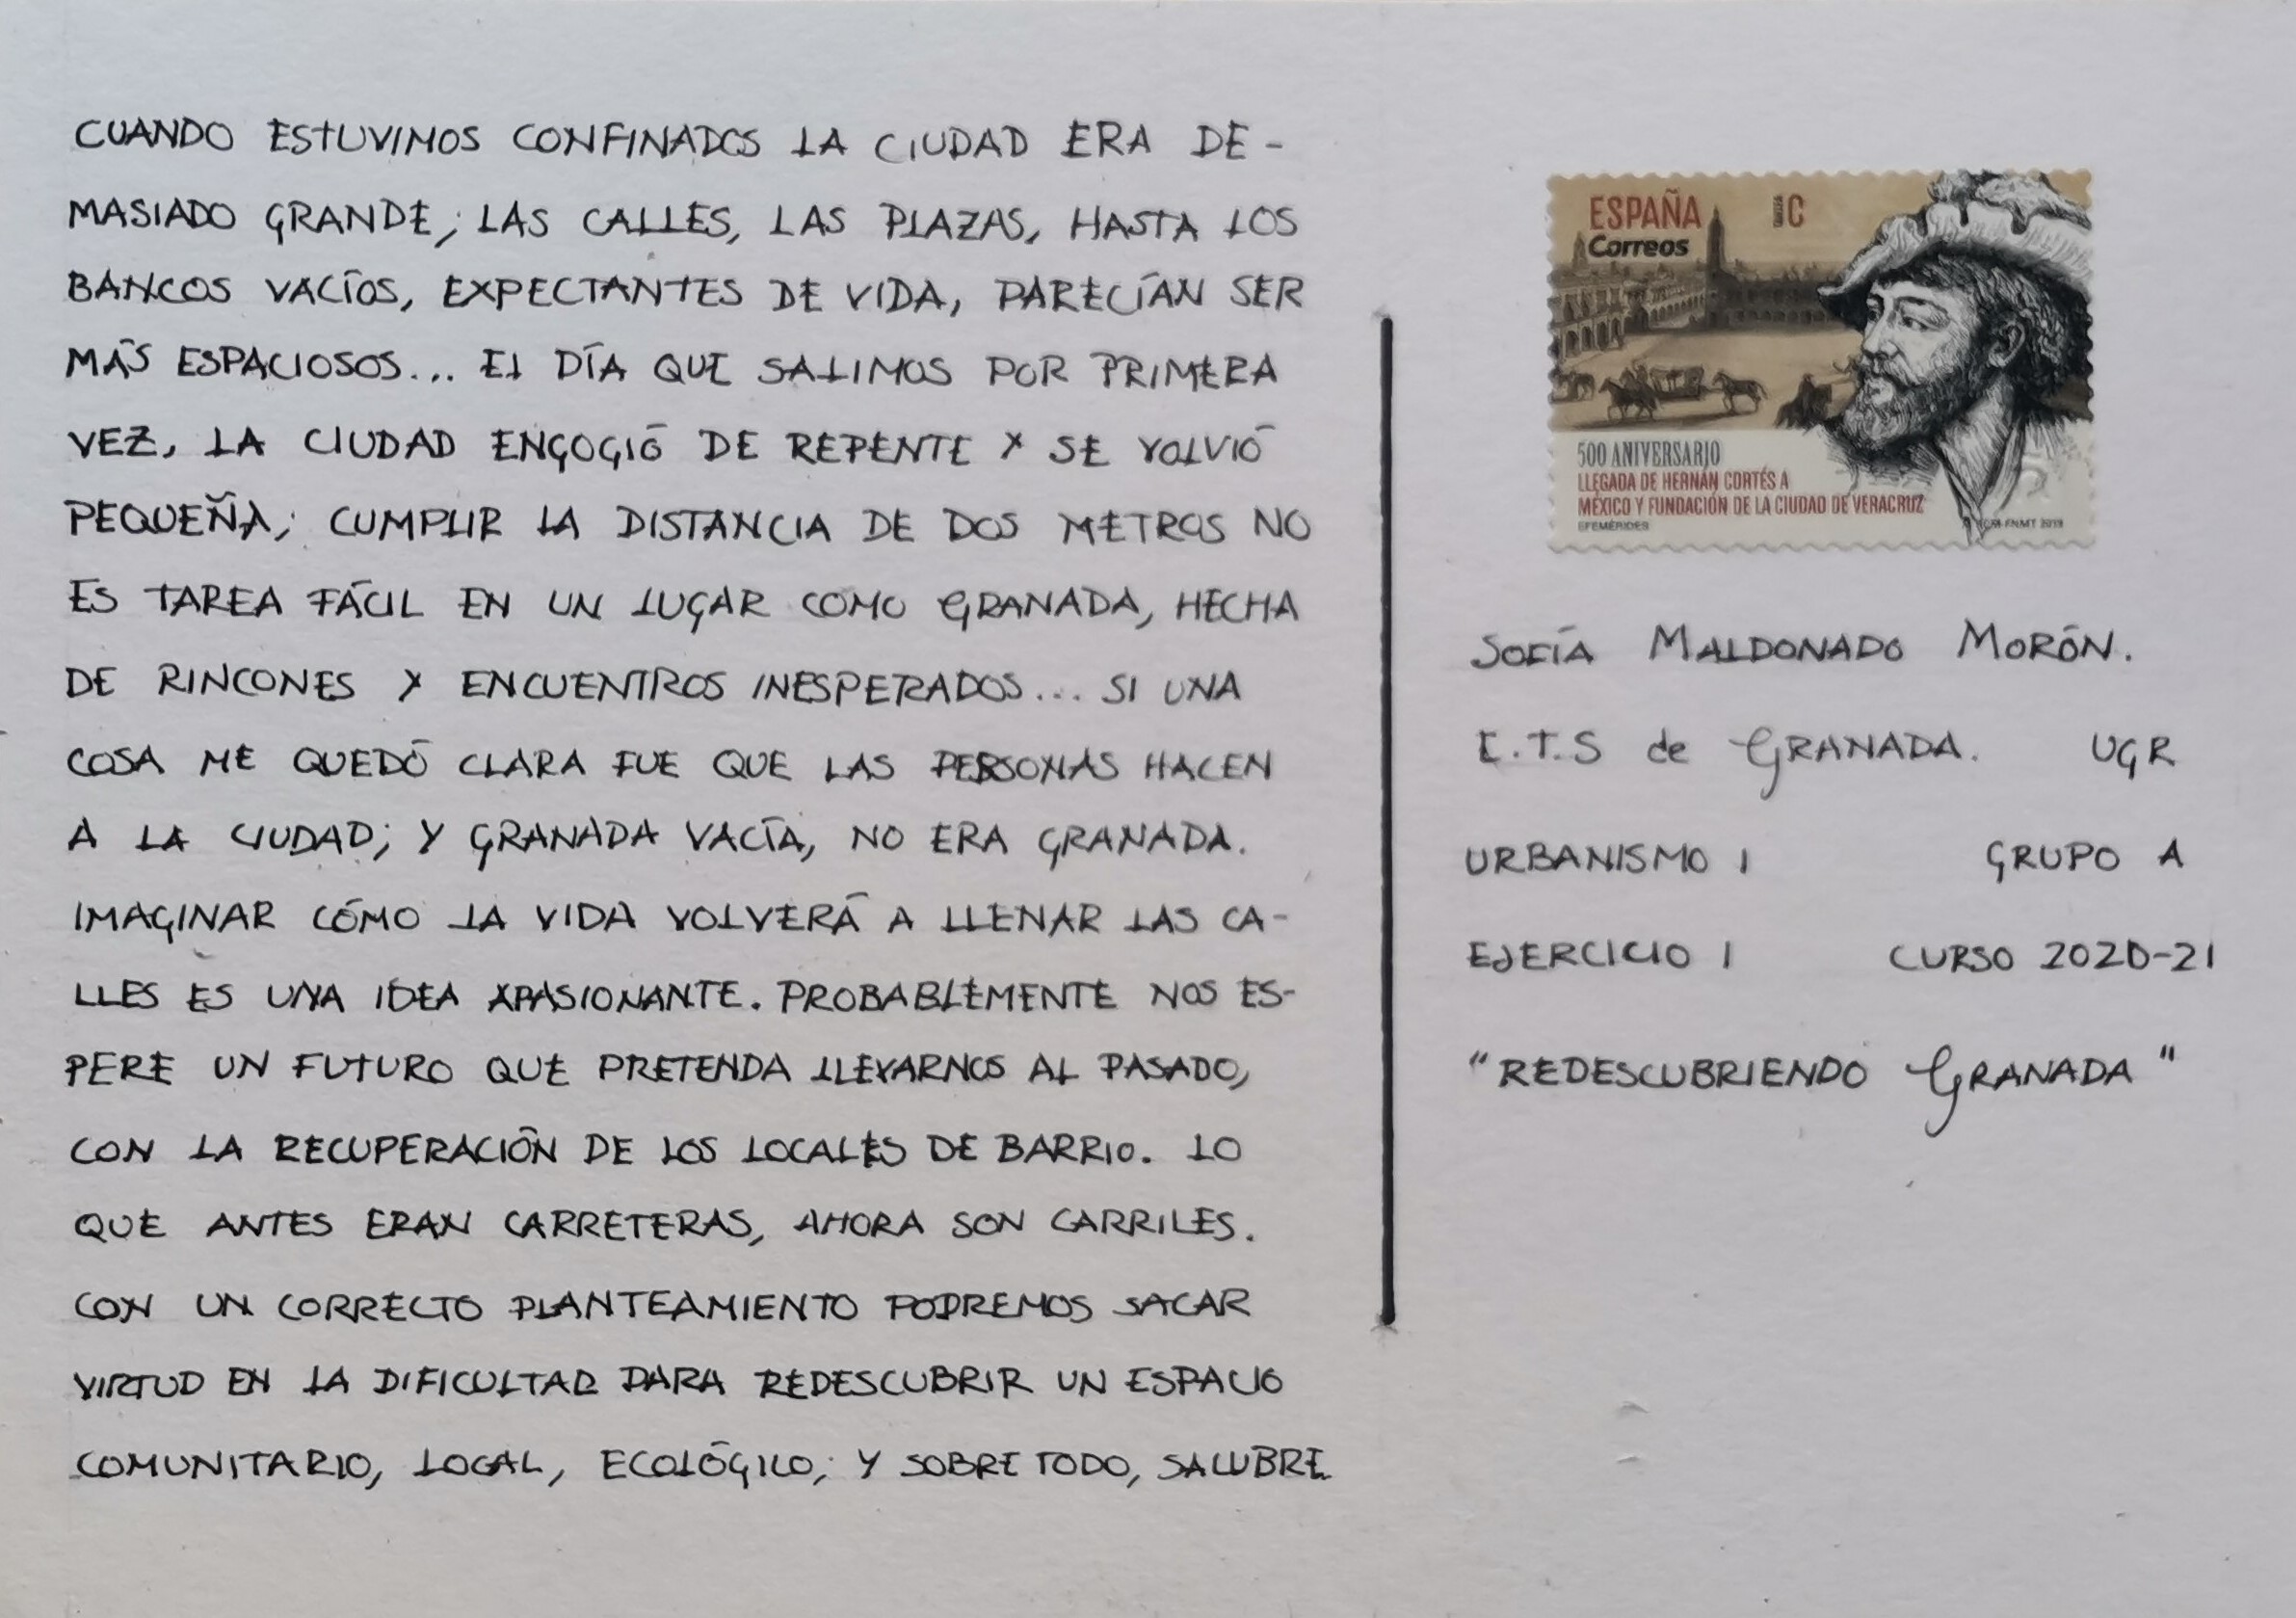 CUANDO ESTUVIMOS CONFINADOS LA CIUDAD ERA DE-
MASIADO GRANDE; LAS CALLES, LAS PLAZAS, HASTA LOS
BANCOS VACÍOS, EXPECTANTES DE VIDA, PARECÍAN SER
MÁS ESPACIOSOS... EL DÍA QUE SALIMOS POR PRIMERA
VEZ, LA CIUDAD ENGOGIÓ DE REPENTE Y SE VOLVIÓ
PEQUEÑA; CUMPLIR LA DISTANCIA DE DOS METROS NO
ES TAREA FÁCIL EN UN LUGAR COMO GRANADA, HECHA
DE RINCONES Y ENCUENTROS INESPERADOS... SI UNA
COSA ME QUEDÓ CLARA FUE QUE LAS PERSONAS HACEN
A LA CIUDAD; Y GRANADA VACÍA, NO ERA GRANADA.
IMAGINAR CÓMO LA VIDA VOLVERÁ A LLENAR LAS CA-
LLES ES UNA IDEA APASIONANTE. PROBABLEMENTE NOS ES-
PERE UN FUTURO QUE PRETENDA LLEVARNOS AL PASADO,
CON LA RECUPERACIÓN DE LOS LOCALES DE BARRIO. LO
QUE ANTES ERAN CARRETERAS, AHORA SON CARRILES.
CON UN CORRECTO PLANTEAMIENTO PODREMOS SACAR
VIRTUD EN LA DIFICULTAD PARA REDESCUBRIR UN ESPACIO
COMUNITARIO, LOCAL, ECOLÓGICO; Y SOBRE TODO, SALUBRE.
ESPAÑA C
Correos
500 ANIVERSARIO
LLEGADA DE HERNÁN CORTÉS A
MÉXICO Y FUNDACIÓN DE LA CIUDAD DE VERACRUZ
EFEMÉRIDES RCM-FNMT 2019
SOFÍA MALDONADO MORÓN.
E.T.S de GRANADA. UGR
URBANISMO 1 GRUPO A
EJERCICIO 1 CURSO 2020-21
"REDESCUBRIENDO GRANADA"